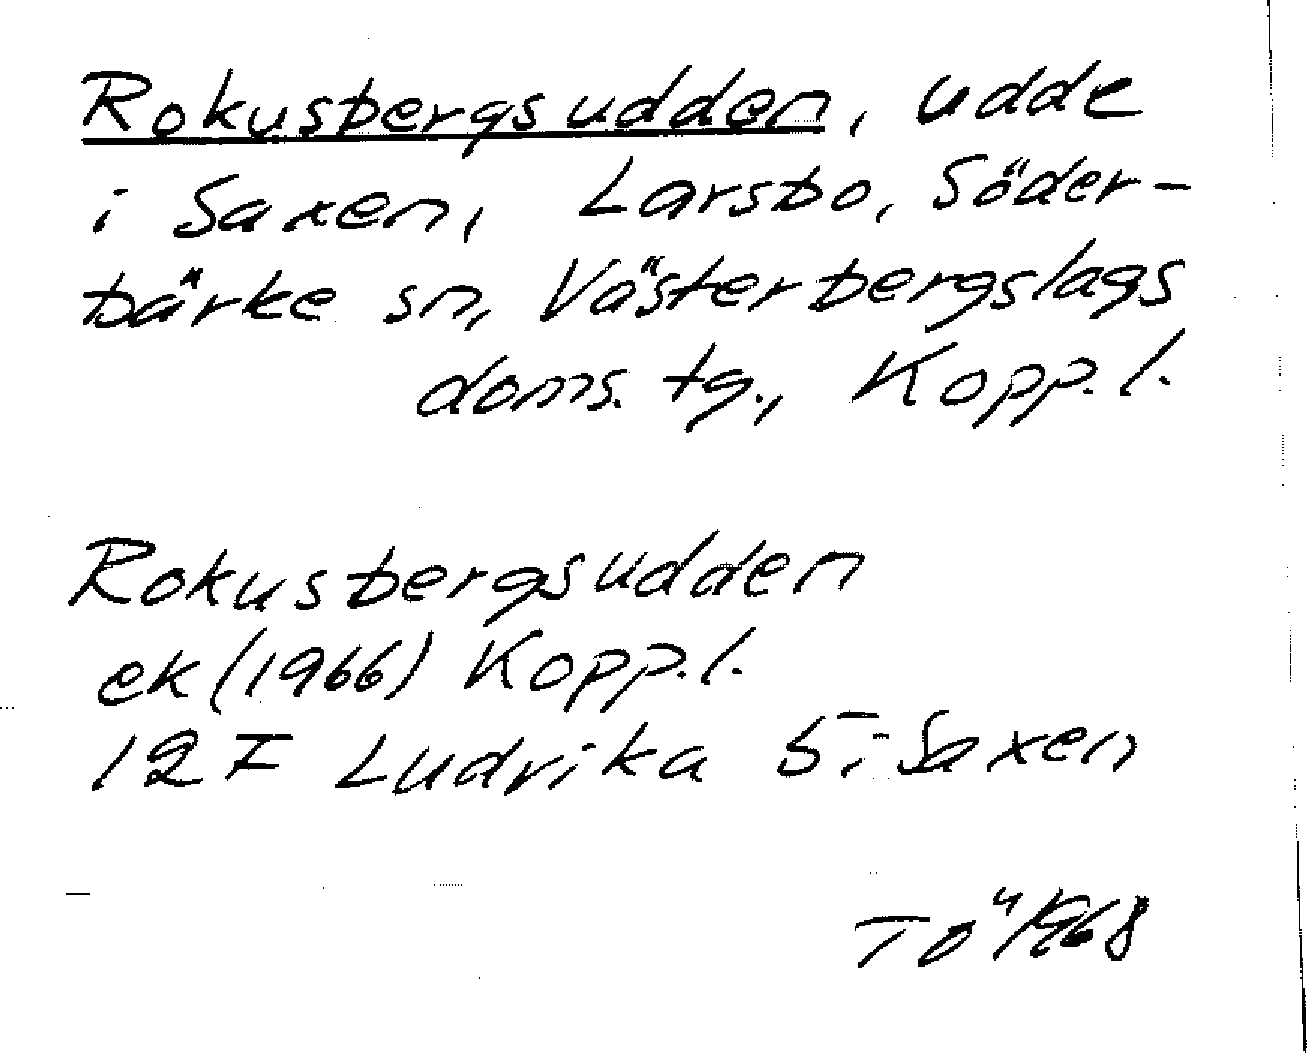 Rokusbergsudden, udde
i Saxen, Larsbo, Söder-
bärke sn, Västerbergslags
doms. tg., Kopp. l.
Rokusbergsudden
ek (1966) Kopp. l.
12 F Ludvika 5 i Saxen
TÖ 1968